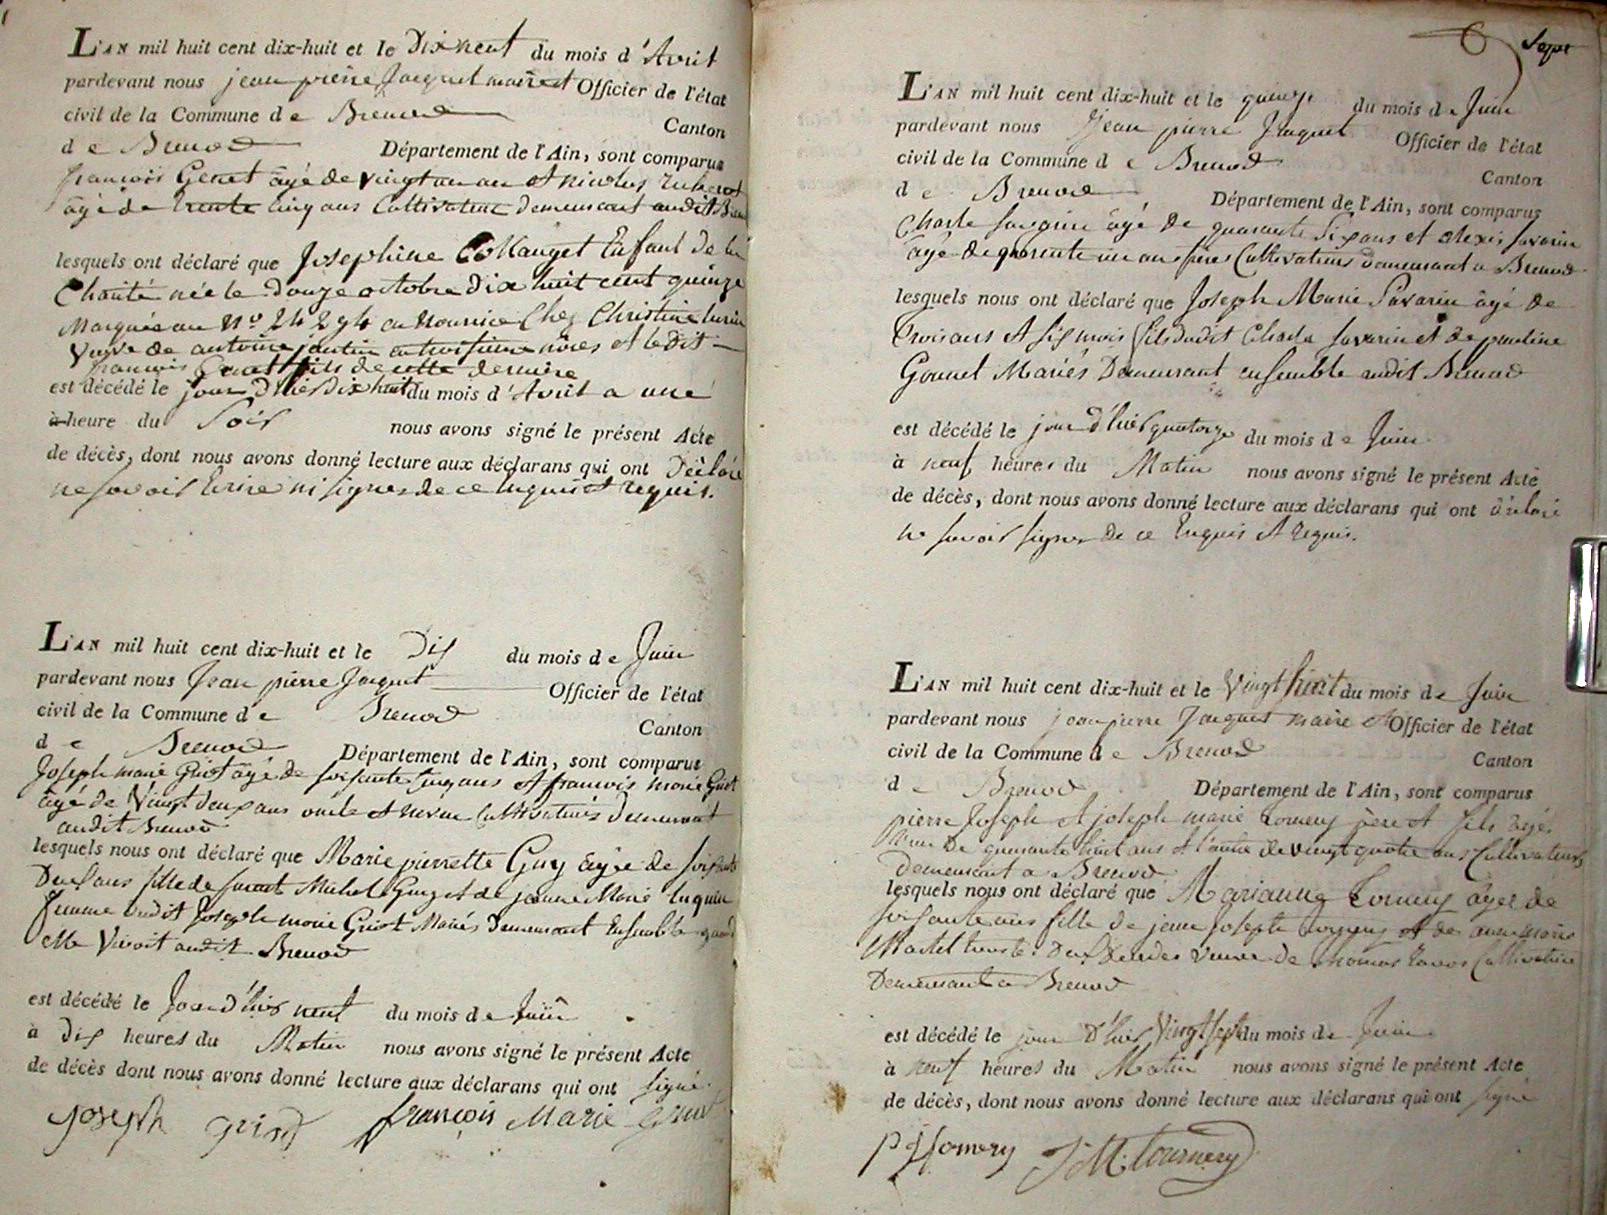 L'AN mil huit cent dix-huit et le Dixneuf du mois d'Avril
pardevant nous jean pierre Jacquet maire et Officier de l'état
civil de la Commune de Brenod
Canton
de Brenod Département de l'Ain, sont comparus
françois Genet âgé de vingt un an et nicolas
âgé de trente cinq ans Cultivateurs demeurant audit Brenod
lesquels ont déclaré que Josephine Collauget Enfant de la
Charité née le douze octobre dix huit cent quinze
Marquée au No 24294 en nourrice Chez Christine
veuve de antoine en troisieme nôces et ledit
françois Genet fils de cette derniere
est décédé le jour d'hier dix huit du mois d'Avril a une
à heure du Soir nous avons signé le présent Acte
de décès, dont nous avons donné lecture aux déclarans qui ont Déclaré
ne savoir Ecrire ni signer de ce Enquis et requis.
L'AN mil huit cent dix-huit et le Dix du mois de Juin
pardevant nous Jean pierre Jacquet Officier de l'état
civil de la Commune de Brenod
Canton
de Brenod Département de l'Ain, sont comparus
Joseph marie Griot âgé de soixante cinq ans et francois marie Griot
âgé de Vingt deux ans oncle et neveu Cultivateurs demeurant
audit Brenod
lesquels nous ont déclaré que Marie pierrette Guy âgée de soixante
Deux ans fille de feu Michel Guy et de jeanne Marie
femme dudit Joseph marie Griot Mariés demeurant Ensemble quand
elle Vivoit audit Brenod
est décédé le Jour d'hier neuf du mois de Juin
à dix heures du Matin nous avons signé le présent Acte
de décès dont nous avons donné lecture aux déclarans qui ont signé
joseph griot françois Marie griot
6 Sept
L'AN mil huit cent dix-huit et le quinze du mois de Juin
pardevant nous Jean pierre Jacquet Officier de l'état
civil de la Commune de Brenod
Canton
de Brenod Département de l'Ain, sont comparus
Charle Savarin âgé de quarante Six ans et alexis Savarin
âgé de quarente un ans frères Cultivateurs demeurant a Brenod
lesquels nous ont déclaré que Joseph Marie Savarin âgé de
trois ans et six mois fils dudit Charle Savarin et de pauline
Gounet Mariés Demeurant ensemble audit Brenod
est décédé le jour d'hier quatorze du mois de Juin
à neuf heures du Matin nous avons signé le présent Acte
de décès, dont nous avons donné lecture aux déclarans qui ont déclaré
ne savoir signer de ce Enquis et requis.
L'AN mil huit cent dix-huit et le Vingt huit du mois de Juin
pardevant nous jean pierre Jacquet maire et Officier de l'état
civil de la Commune de Brenod
Canton
de Brenod Département de l'Ain, sont comparus
pierre Joseph et joseph marie Tornery père et fils âgés
l'un De quarante huit ans et l'autre de vingt quatre ans Cultivateurs
Demeurant a Brenod
lesquels nous ont déclaré que Marianne Tornery âgée de
soixante ans fille de jean Joseph Tornery et de anne marie
Martel tous les Deux Décédés veuve de thomas Cultivatrice
Demeurant a Brenod
est décédé le jour D'hier Vingt sept du mois de Juin
à neuf heures du Matin nous avons signé le présent Acte
de décès, dont nous avons donné lecture aux déclarans qui ont signé
pjtornery JM. tournery